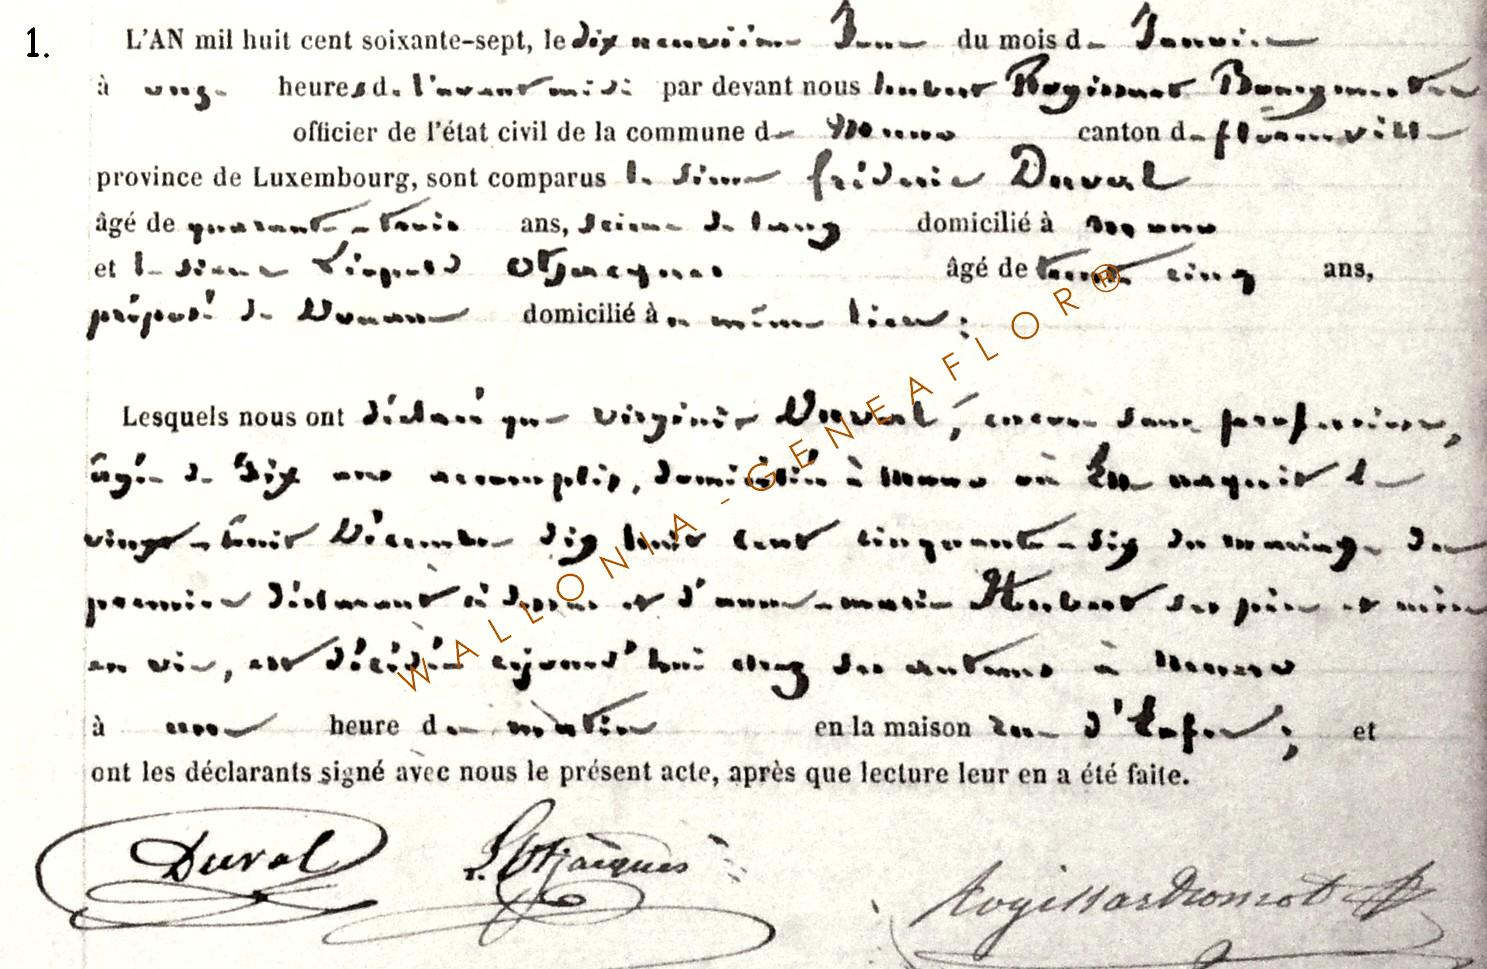 1.
L'AN mil huit cent soixante-sept, le dix neuvième Jour du mois de Janvier
à onze heures de l'avant midi par devant nous hubert Rogissart Bourgmestre
officier de l'état civil de la commune de Muno canton de florenville
province de Luxembourg, sont comparus le sieur fréderic Duval
âgé de quarante-trois ans, scieur de long domicilié à Muno
et le sieur Léopold Otjacques âgé de trente cinq ans,
préposé de Douane domicilié à ce même lieu;
Lesquels nous ont déclaré que Virginie Duval, encore sans profession,
âgée de dix ans accomplis, domiciliée à Muno où Elle naquit le
vingt-huit Décembre dix huit cent cinquante-six du mariage du
premier déclarant ci dessus et d'anne-marie Hubert ses père et mère
en vie, est décédée aujourd'hui chez ses auteurs à Muno
à une heure de matin en la maison rue d'Enfer; et
ont les déclarants signé avec nous le présent acte, après que lecture leur en a été faite.
Duval L. Otjacques Rogissart
WALLONIA-GENEAFLOR®